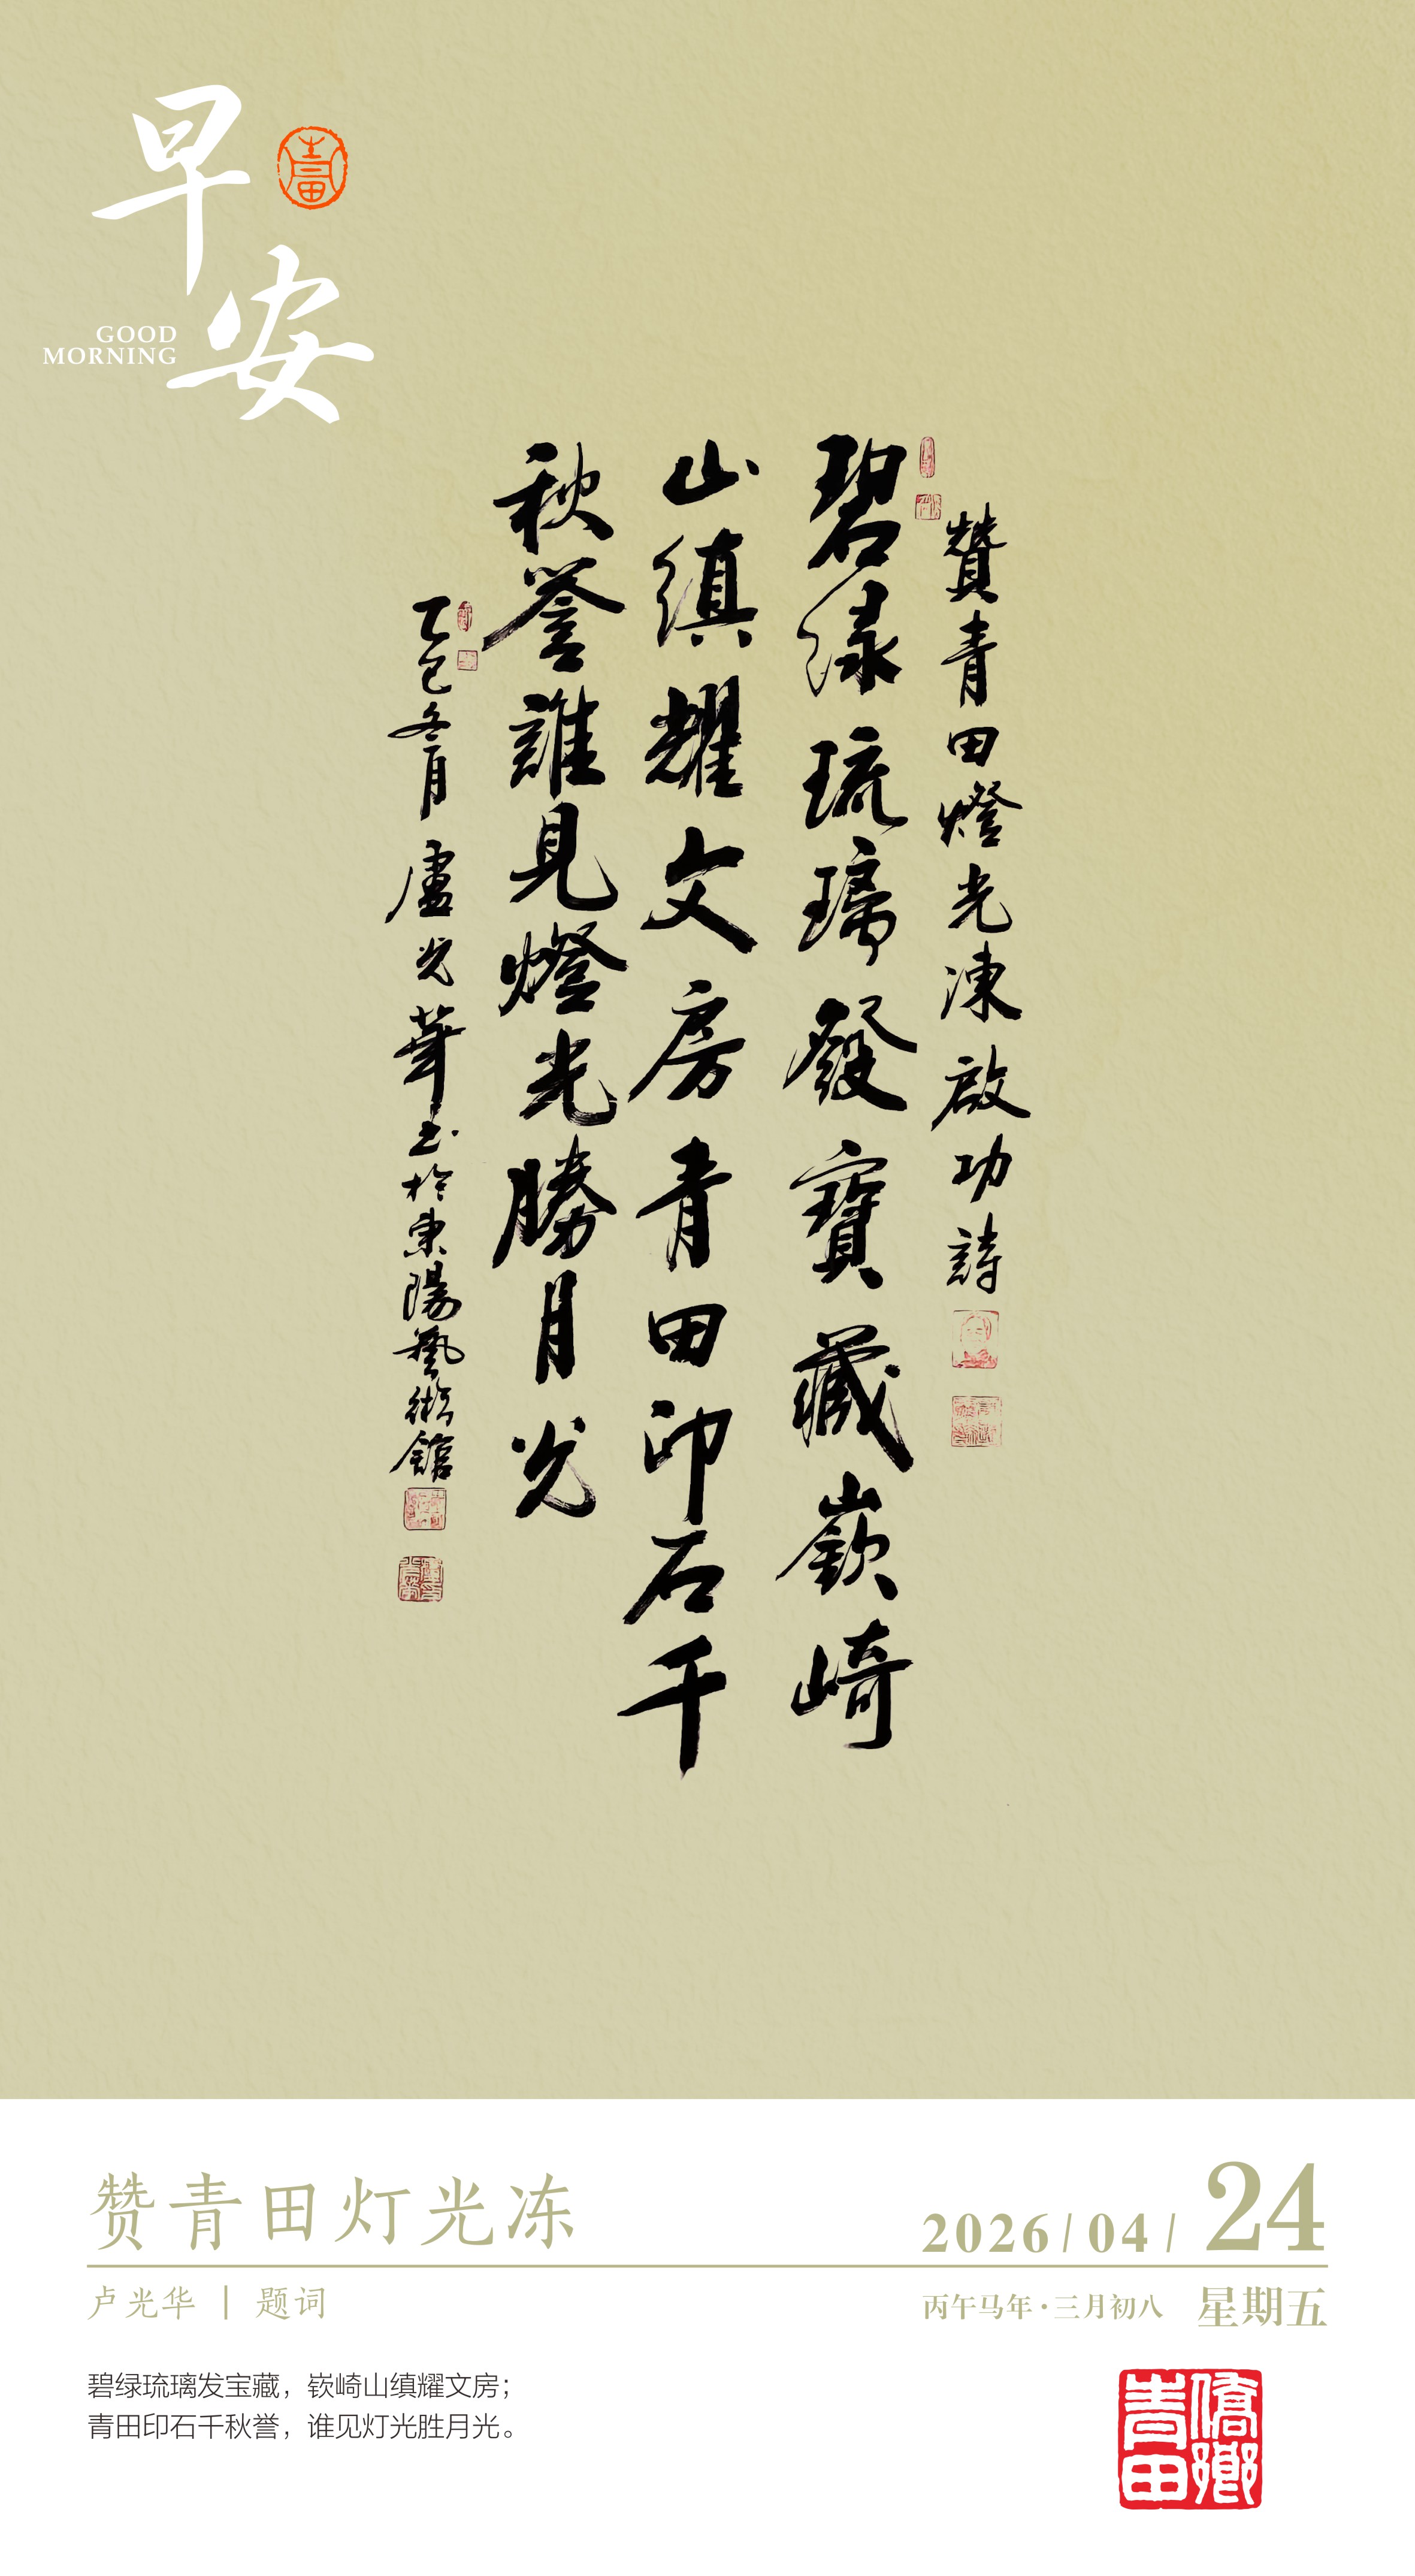 早安
GOOD
MORNING
青田
贊青田燈光凍啟功詩
碧綠琉璃發寶藏嶔崎
山縝耀文房青田印石千
秋譽誰見燈光勝月光
乙巳冬月盧光華书於東陽藝術館
赞青田灯光冻
2026/04/24
卢光华 | 题词
丙午马年·三月初八 星期五
碧绿琉璃发宝藏，嵚崎山缜耀文房；
青田印石千秋誉，谁见灯光胜月光。
僑鄉青田